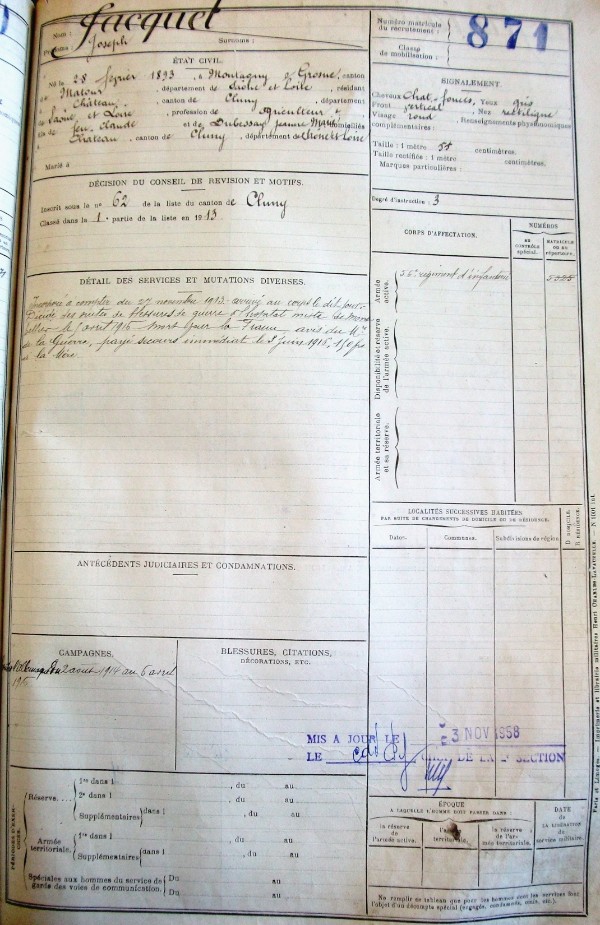 Nom : Jacquet
Prénoms : Joseph Surnoms :
ÉTAT CIVIL.
Né le 28 février 1893, à Montagny s/ Grosne, canton
de Matour, département de Saône et Loire, résidant
à Château, canton de Cluny, département
de Saône et Loire, profession de Agriculteur
fils de feu Claude et de Dubessay Jeanne Marie domiciliés
à Château, canton de Cluny, département de Saône et Loire
Marié à
DÉCISION DU CONSEIL DE REVISION ET MOTIFS.
Inscrit sous le no 62 de la liste du canton de Cluny
Classé dans la 1e partie de la liste en 1913
DÉTAIL DES SERVICES ET MUTATIONS DIVERSES.
Incorporé à compter du 27 novembre 1913 arrivé au corps le dit jour
Décédé des suites de blessures de guerre hopital mixte de
le 5 avril 1915 mort pour la France avis du Mre
de la Guerre, payé secours immédiat le 8 juin 1915, 150 frs
à la Mère
ANTÉCÉDENTS JUDICIAIRES ET CONDAMNATIONS.
CAMPAGNES.
l'Allemagne du 2 aout 1914 au 5 avril
1915
BLESSURES, CITATIONS,
DÉCORATIONS, ETC.
MIS A JOUR LE 3 NOV 1958
LE DE LA SECTION
PÉRIODES D'EXERCICES.
Réserve....
1re dans l , du au
2e dans l , du au
Supplémentaires dans l , du au
Armée territoriale.
1re dans l , du au
Supplémentaires dans l , du au
Spéciales aux hommes du service de garde des voies de communication.
Du au
Du au
Numéro matricule du recrutement : 871
Classe de mobilisation :
SIGNALEMENT.
Cheveux Chat. foncés, Yeux gris
Front vertical, Nez rectiligne
Visage rond, Renseignements physionomiques
complémentaires :
Taille : 1 mètre 55 centimètres.
Taille rectifiée : 1 mètre centimètres.
Marques particulières :
Degré d'instruction : 3
CORPS D'AFFECTATION.
NUMÉROS
AU CONTRÔLE SPÉCIAL.
MATRICULE OU AU RÉPERTOIRE.
Armée active.
56e régiment d'infanterie
Disponibilité et réserve de l'armée active.
Armée territoriale et sa réserve.
LOCALITÉS SUCCESSIVES HABITÉES
PAR SUITE DE CHANGEMENTS DE DOMICILE OU DE RÉSIDENCE.
Dates. Communes. Subdivisions de région. D. DOMICILE. R. RÉSIDENCE.
ÉPOQUE
A LAQUELLE L'HOMME DOIT PASSER DANS :
la réserve de l'armée active.
l'armée territoriale.
la réserve de l'armée territoriale.
DATE
DE LA LIBÉRATION DU service militaire.
Ne remplir ce tableau que pour les hommes dont les services font
l'objet d'un décompte spécial (engagés, condamnés, omis, etc.).
Paris et Limoges. — Imprimerie et librairie militaires Henri CHARLES-LAVAUZELLE.